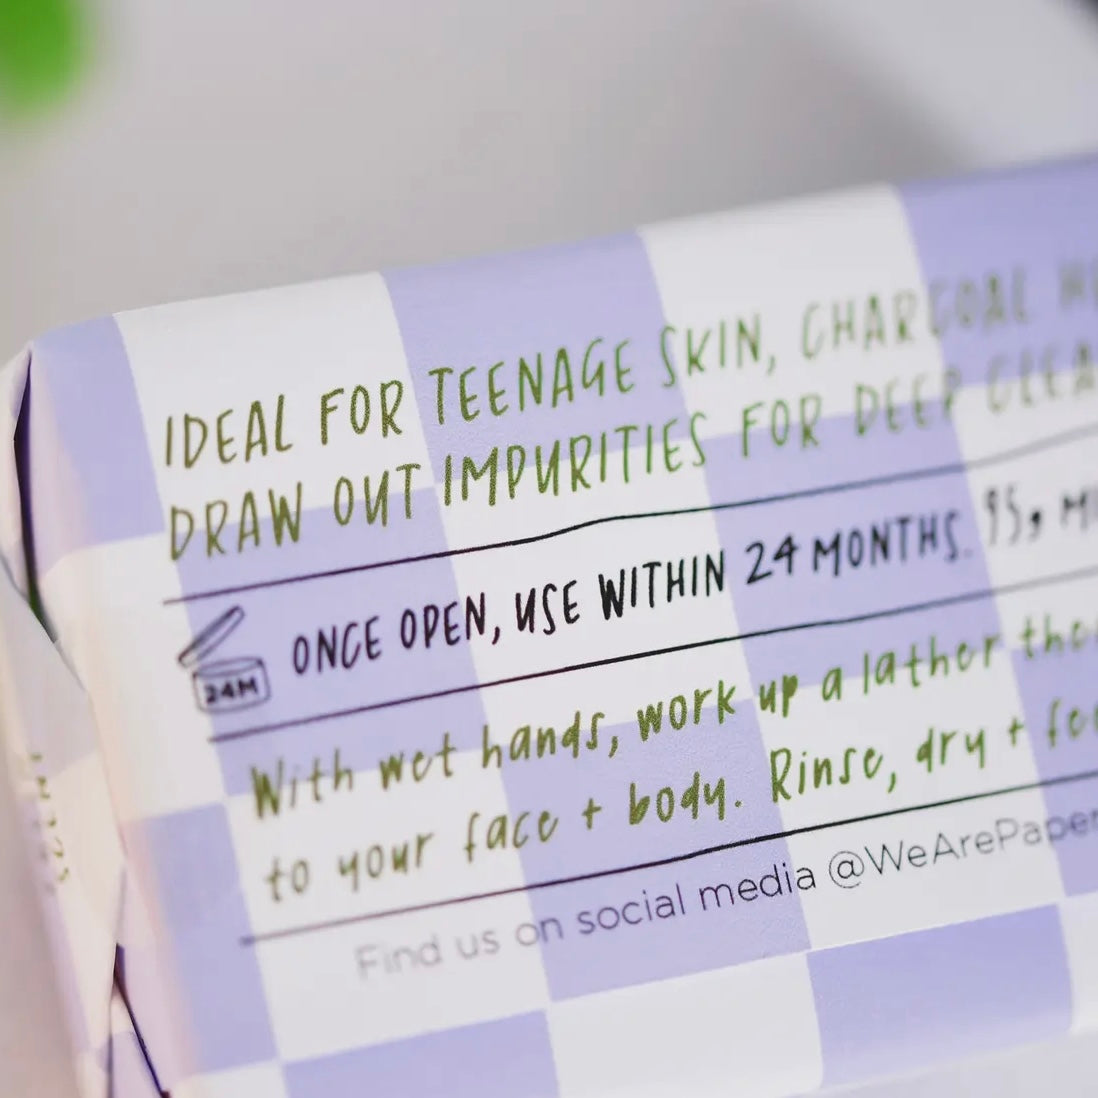 IDEAL FOR TEENAGE SKIN, CHARCOAL
DRAW OUT IMPURITIES FOR DEEP
24M
ONCE OPEN, USE WITHIN 24 MONTHS. 95,
With wet hands, work up a lather
to your face + body. Rinse, dry +
Find us on social media @WeArePaper